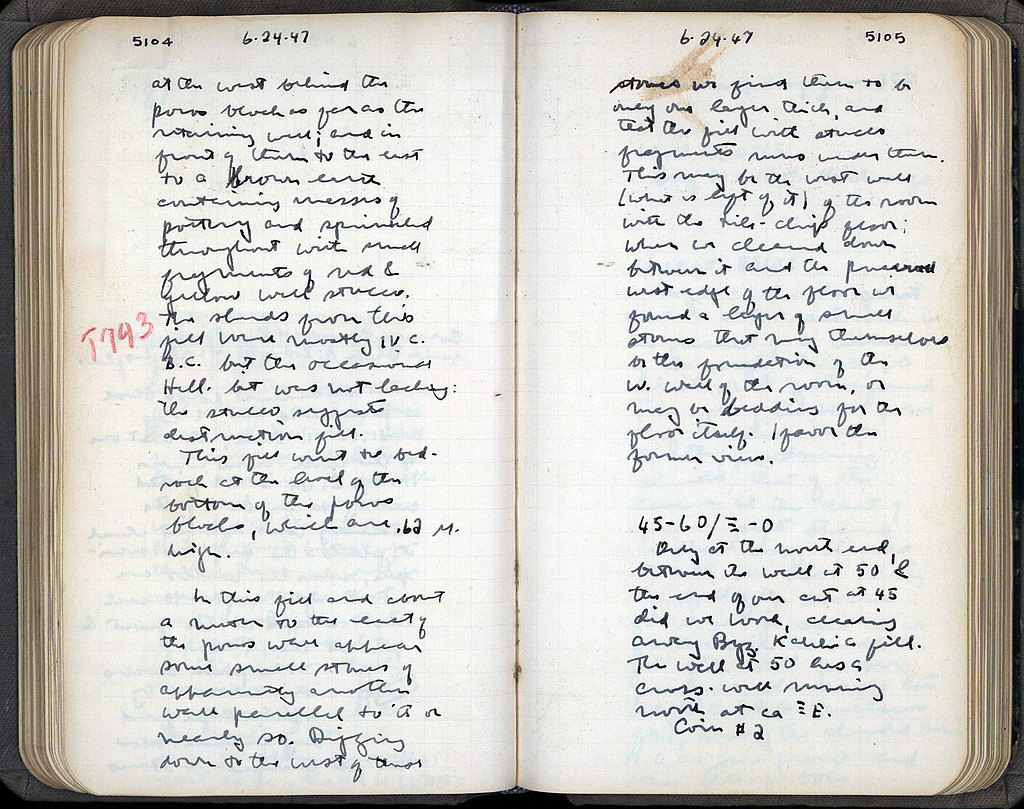 5104 6-24-47
at the west behind the
poros block as far as the
retaining wall; and in
front of them to the east
to a brown earth
containing masses of
pottery and sprinkled
throughout with small
fragments of red &
yellow wall stucco.
The sherds from this
T793
fill were mostly IV c.
B.C. but the occasional
Hell. bit was not lacking:
the stucco suggests
destruction fill.
This fill went to bed-
rock at the level of the
bottom of the poros
blocks, which are .62 m.
high.
In this fill and about
a meter to the east of
the poros wall appear
some small stones of
apparently another
wall parallel to A or
nearly so. Digging
down to the west of these
6-24-47 5105
stones we find them to be
only one layer thick, and
that the fill with stucco
fragments runs under them.
This may be the west wall
(what is left of it) of the room
with the tile-chip floor;
when we cleaned down
between it and the preserved
west edge of the floor we
found a layer of small
stones that may themselves
be the foundation of the
w. wall of the room, or
may be bedding for the
floor itself. I favor the
former view.
45-60/Ξ-O
Only at the north end,
between the wall at 50 &
the end of our cut at 45
did we work, clearing
away Byz. fill.
The wall at 50 has a
cross-wall running
north at ca ΞE.
Coin #2